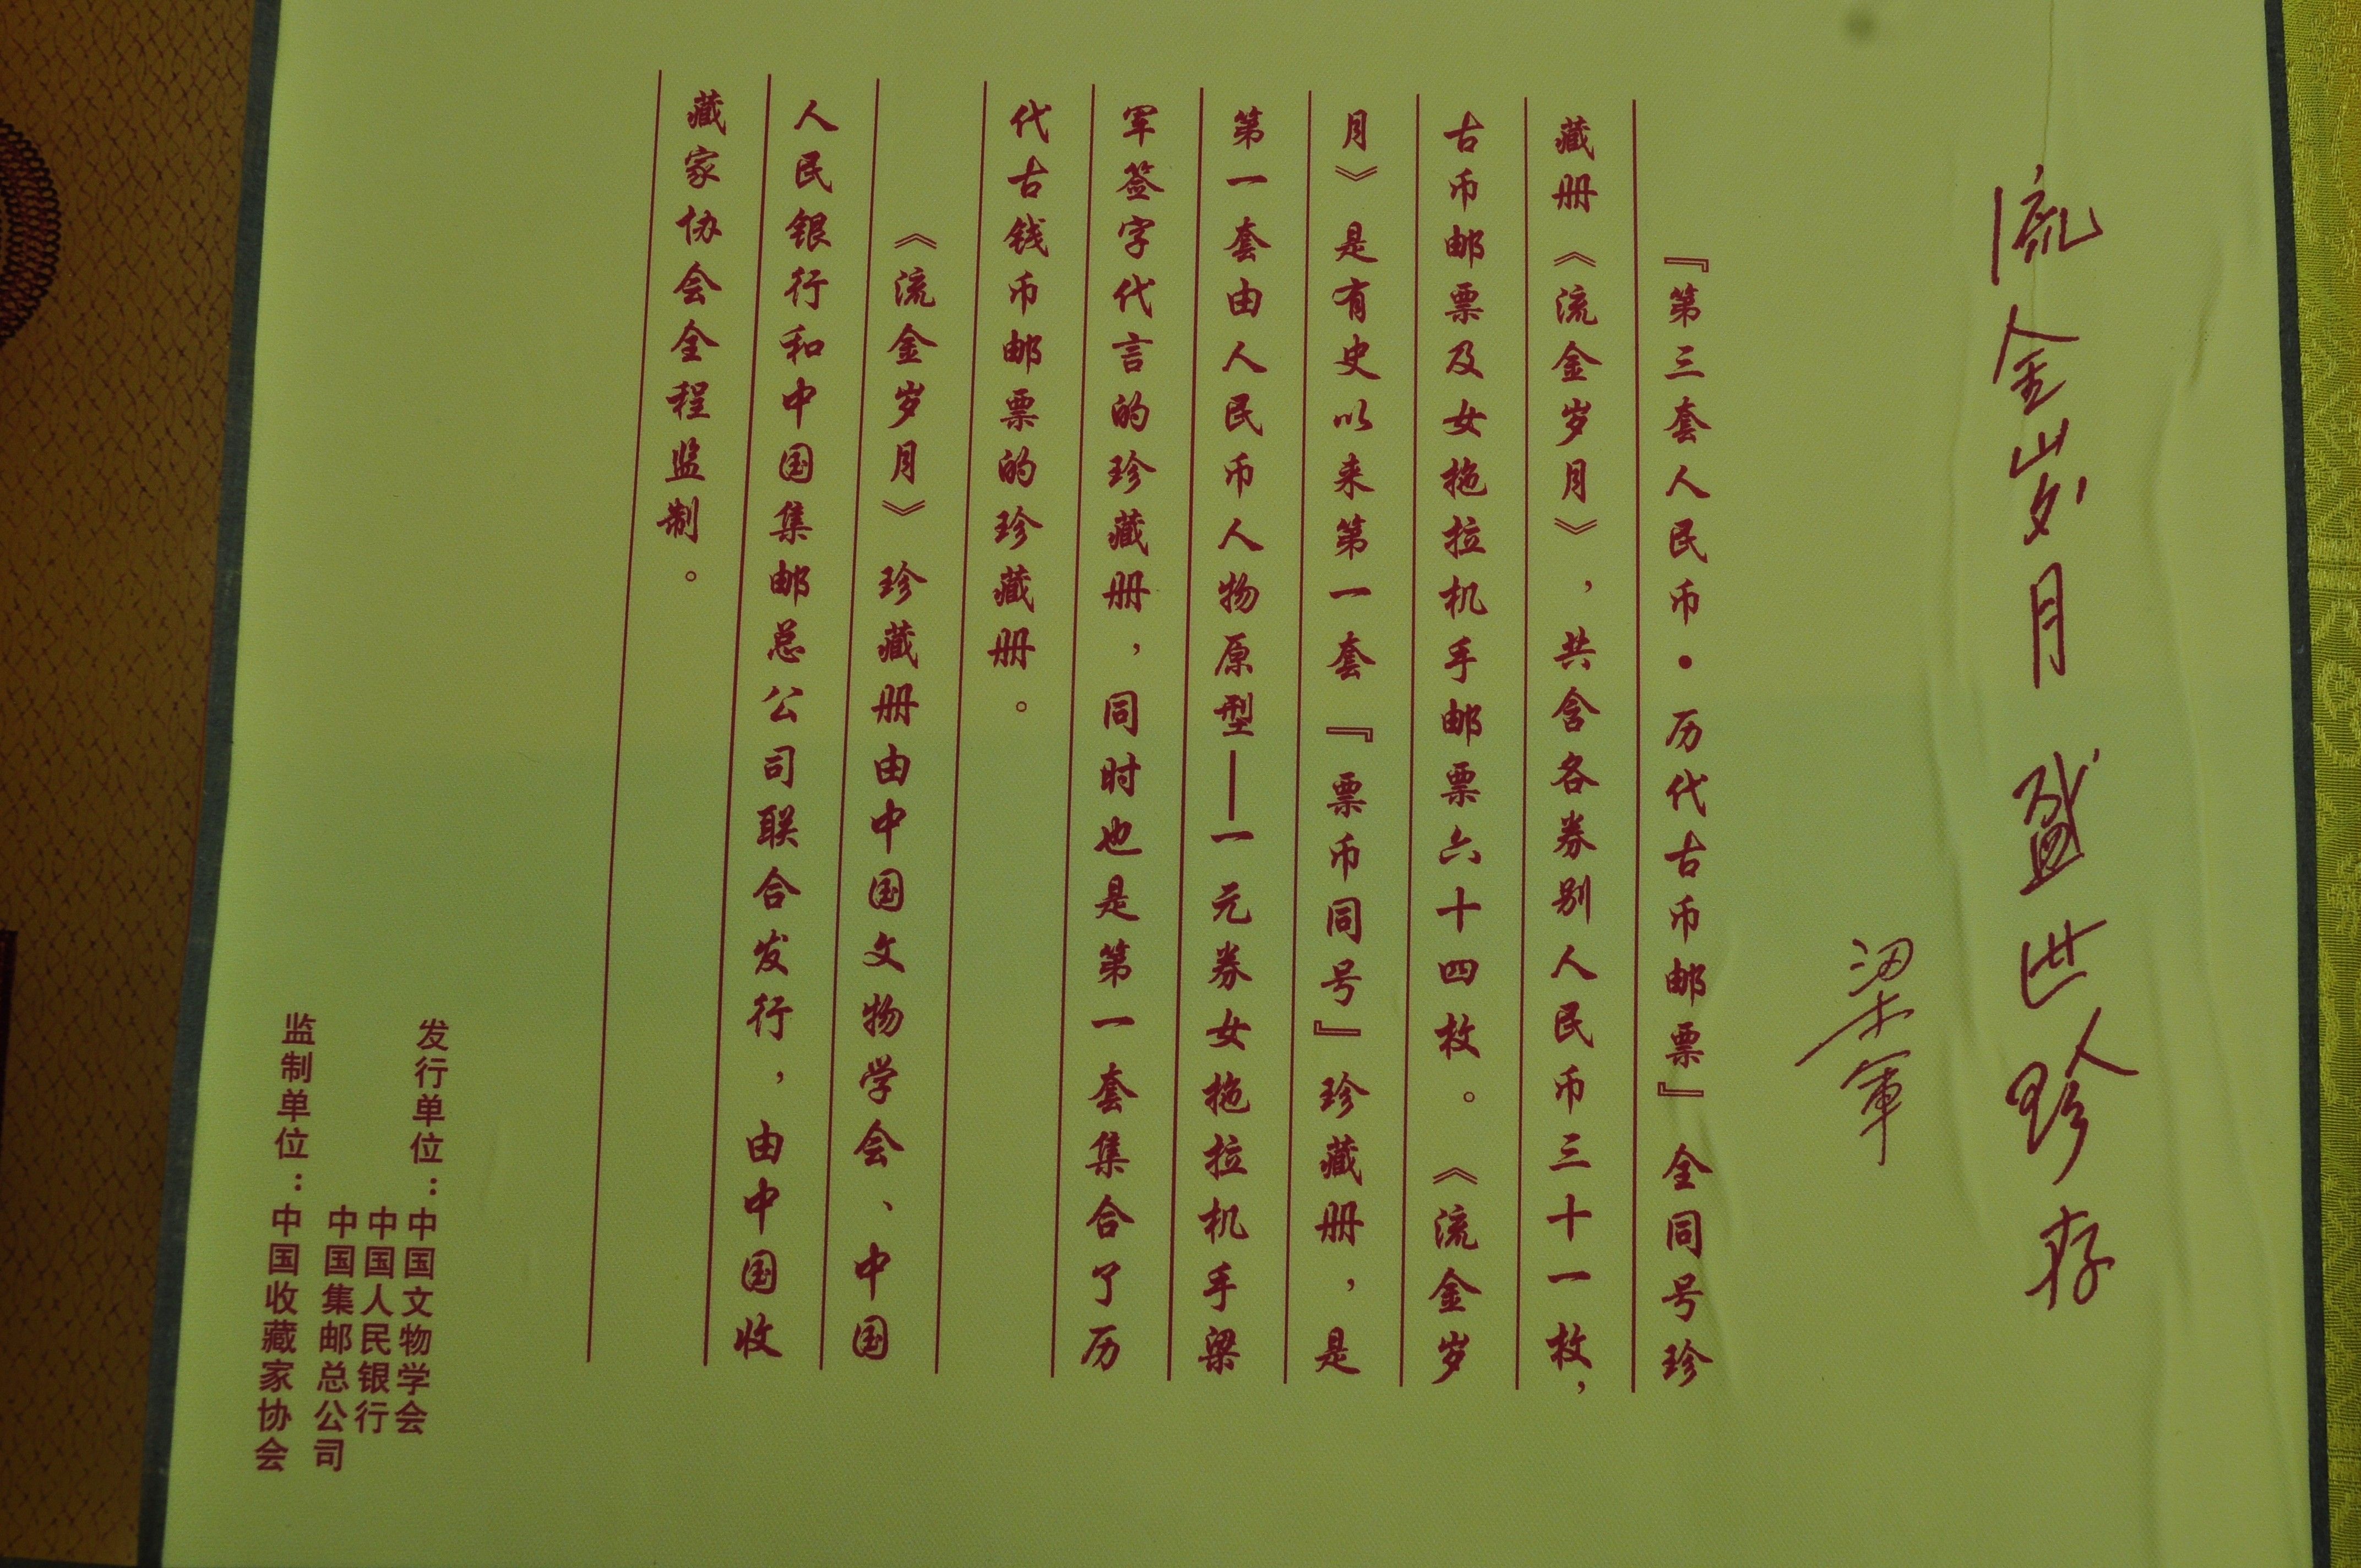 流金岁月 盛世珍存
梁军
『第三套人民币·历代古币邮票』全同号珍
藏册《流金岁月》，共含各券别人民币三十一枚，
古币邮票及女拖拉机手邮票六十四枚。《流金岁
月》是有史以来第一套『票币同号』珍藏册，是
第一套由人民币人物原型——一元券女拖拉机手梁
军签字代言的珍藏册，同时也是第一套集合了历
代古钱币邮票的珍藏册。
《流金岁月》珍藏册由中国文物学会、中国
人民银行和中国集邮总公司联合发行，由中国收
藏家协会全程监制。
发行单位：中国文物学会
中国人民银行
中国集邮总公司
监制单位：中国收藏家协会